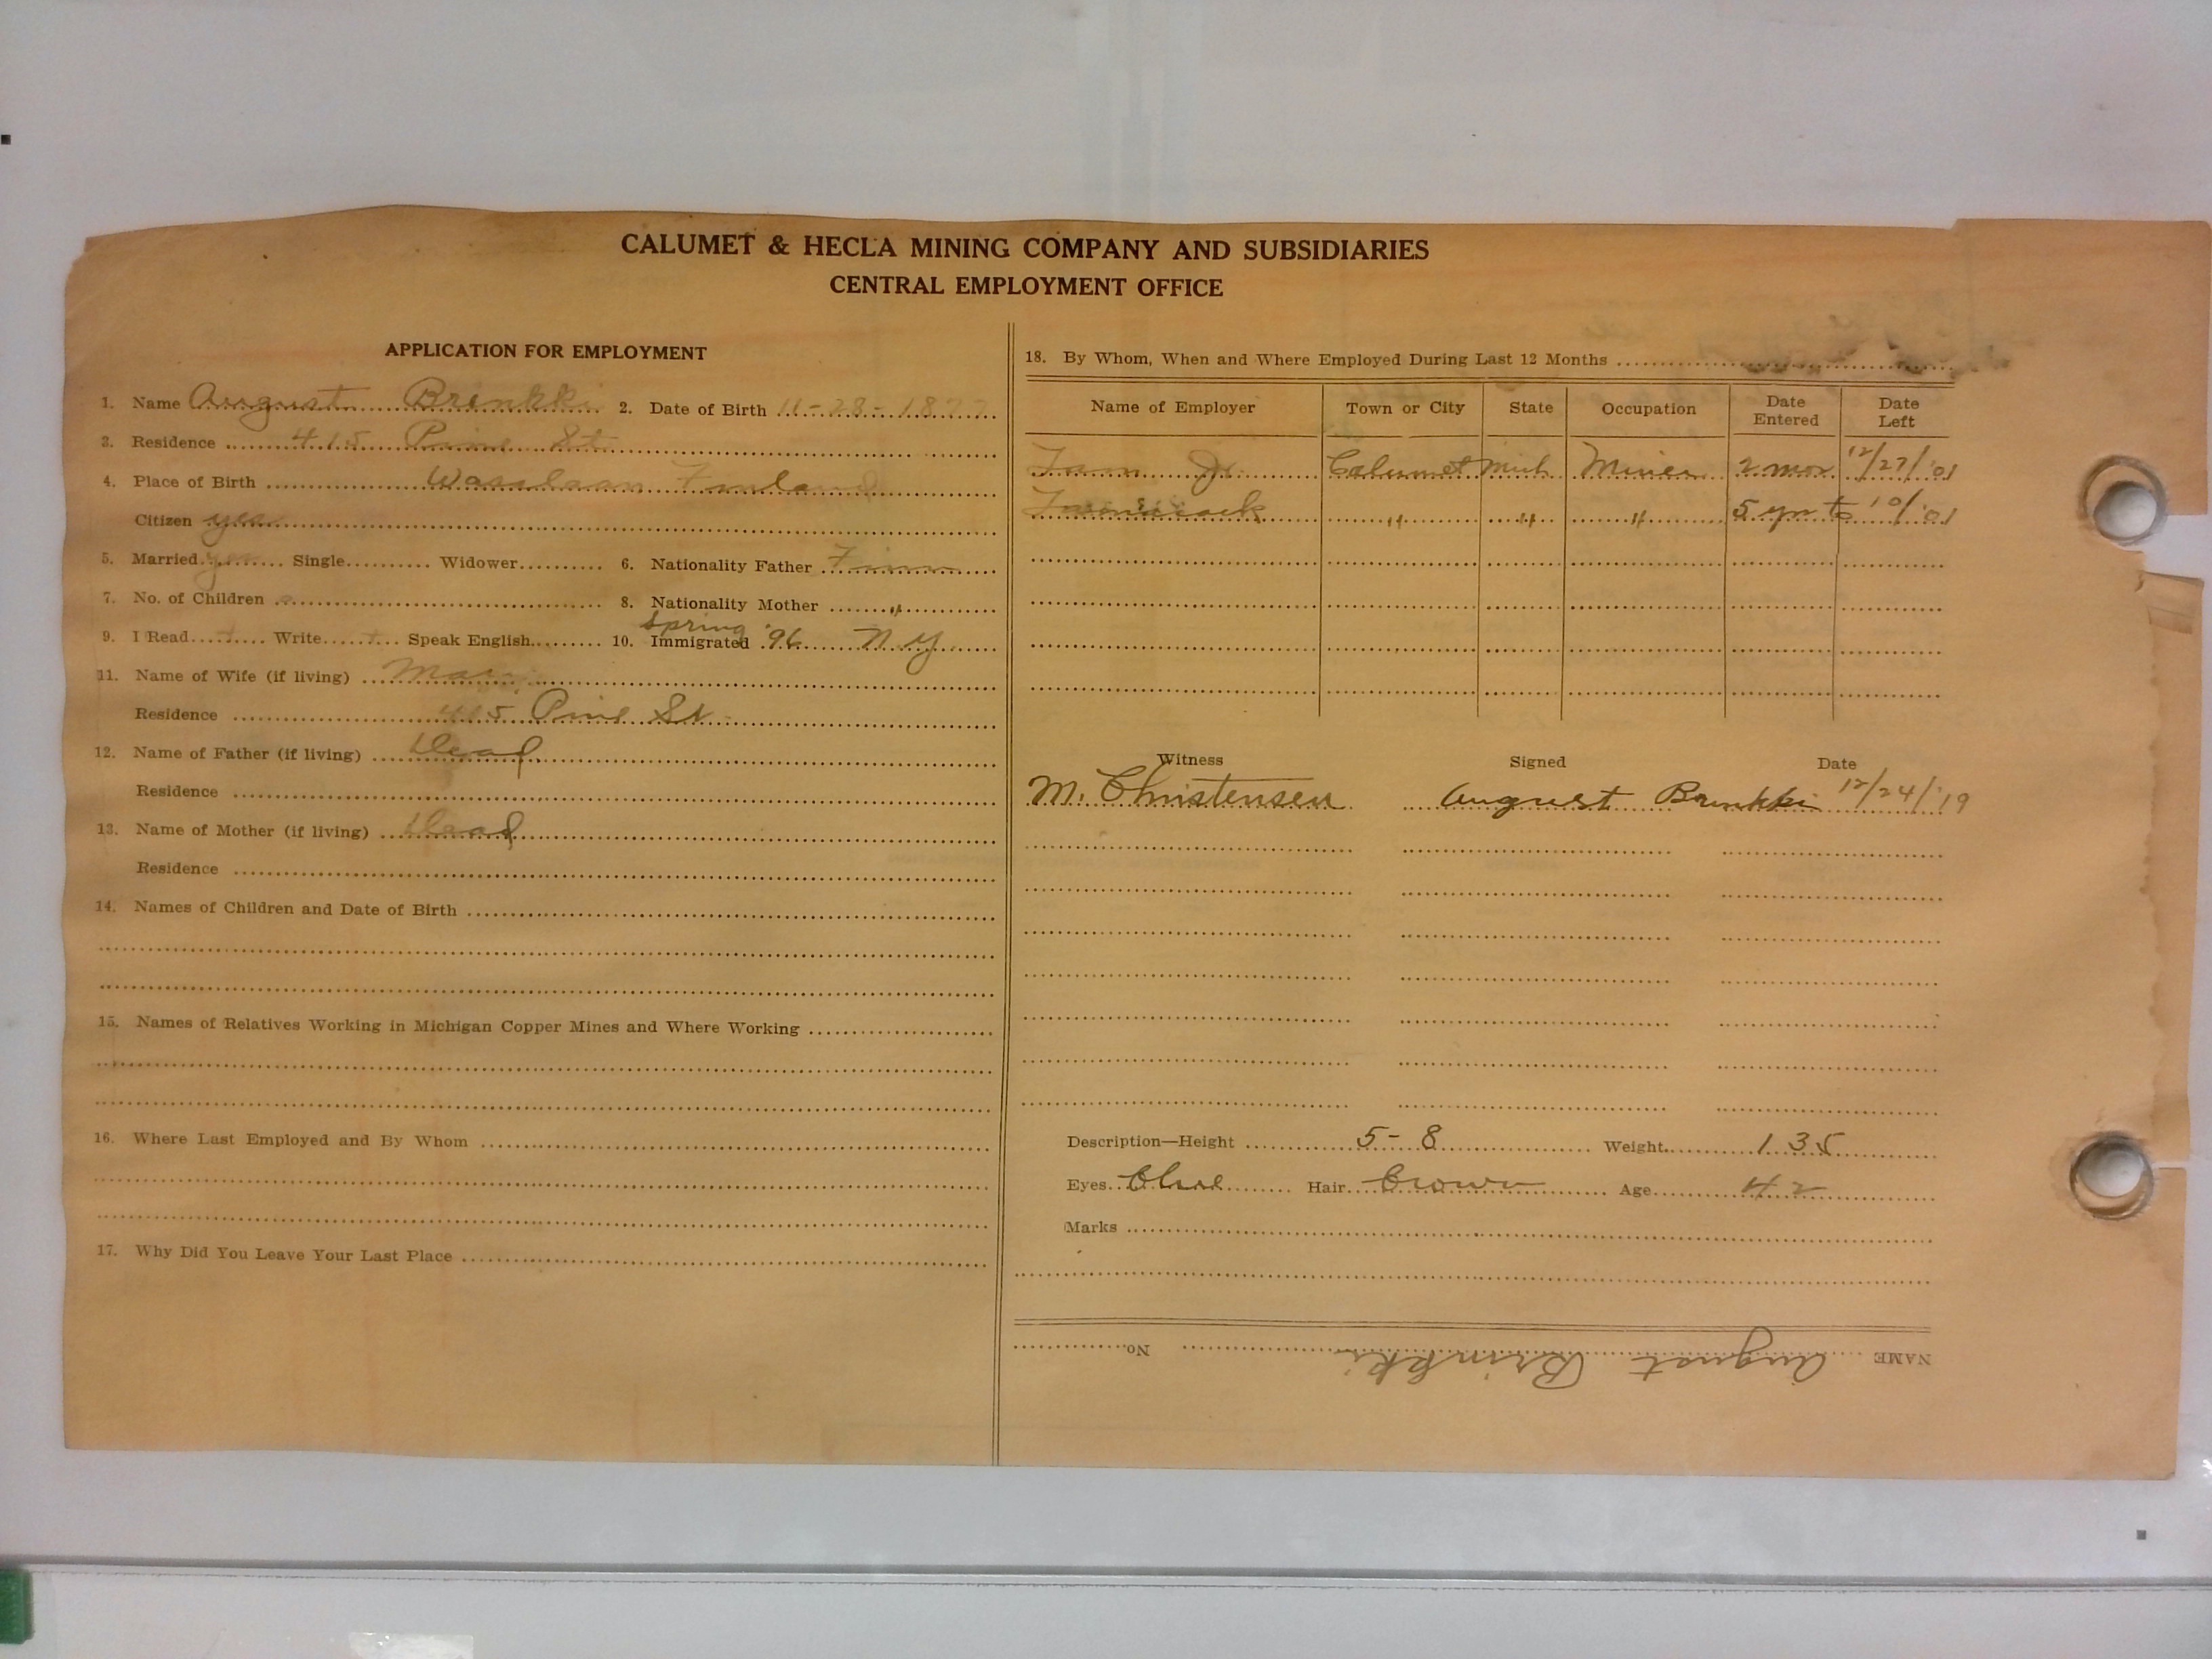 CALUMET & HECLA MINING COMPANY AND SUBSIDIARIES
CENTRAL EMPLOYMENT OFFICE
APPLICATION FOR EMPLOYMENT
1. Name August Brinkki 2. Date of Birth 11-28-1877
3. Residence 415 Pine St
4. Place of Birth Finland
Citizen yes
5. Married yes Single Widower 6. Nationality Father Finn
7. No. of Children 8. Nationality Mother "
Spring
9. I Read Write Speak English 10. Immigrated '96 N.Y.
11. Name of Wife (if living)
Residence 415 Pine St
12. Name of Father (if living) Dead
Residence
13. Name of Mother (if living) Dead
Residence
14. Names of Children and Date of Birth
15. Names of Relatives Working in Michigan Copper Mines and Where Working
16. Where Last Employed and By Whom
17. Why Did You Leave Your Last Place
18. By Whom, When and Where Employed During Last 12 Months
Name of Employer Town or City State Occupation Date Entered Date Left
Calumet Mich Miner 2 mos 12/27/'01
" " " 5 yrs to 10/'01
Witness Signed Date
M. Christensen August Brinkki 12/24/'19
Description—Height 5-8 Weight 135
Eyes Blue Hair Brown Age 42
Marks
NAME August Brinkki No.